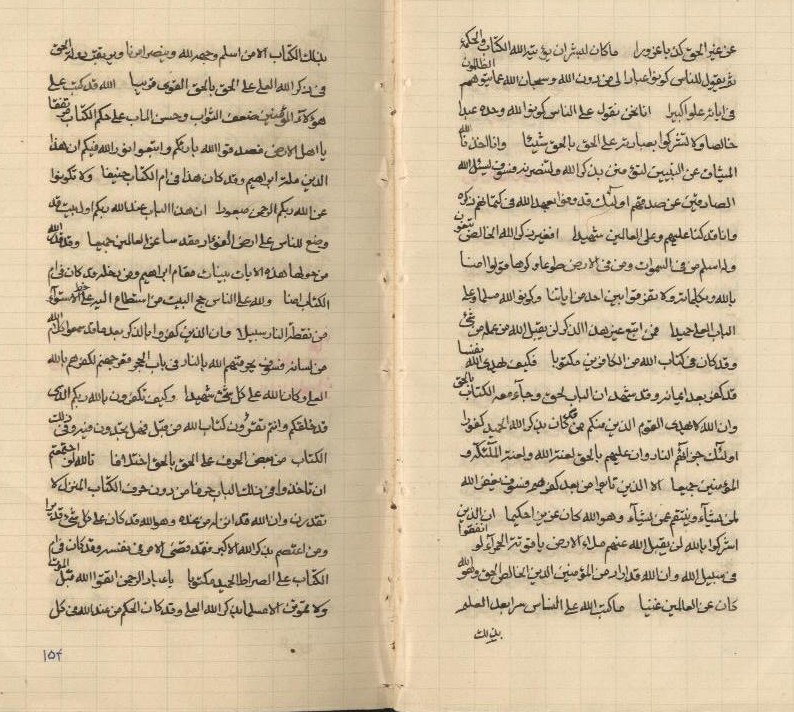 عن غير الحق كذبا غرورا ما كان لبشر ان يؤتيه الله الكتاب والحكمة
ثم يقول للناس كونوا عبادا لي من دون الله وسبحان الله عما يقولهم الظالمون
علوا كبيرا انا نحن نقول على الناس كونوا لله وحده عبدا
خالصا ولا تشركوا بعبادته على الحق بالحق شيئا وانا اخذنا الله
الميثاق عن النبيين لتؤمنن بذكر الله ولتنصرنه فسوف ليسئل الله
الصادقين عن صدقهم اولئك قد وفوا بعهد الله في
وانا قد كنا عليهم وعلى العالمين شهيدا افغير ذكر الله الخالص تبتغون
وله اسلم من في السموات ومن في الارض طوعا وكرها قولوا امنا
بالله وبكلماته ولا تفرقوا بين احد من اياتنا وكونوا لله مسلما وعلى
الباب العلي حميدا فمن ابتغ غير هذا الذكر لن يقبل الله من عمله من شئ
وقد كان في كتاب الله من الكافرين مكتوبا فكيف يهدي الله نفسا
قد كفر بعد ايمانه وقد شهد ان الباب لحق وجاء معه الكتاب بالحق
وان الله لا يهدي القوم الذين منكم كان بذكر الله الحميد كفورا
اولئك جزائهم النار وان عليهم بالحق لعنة الله ولعنة الملئكة و
المؤمنين جميعا الا الذين تابوا من بعد كفرهم فسوف يغفر الله
لمن يشآء وينتقم عمن يشآء وهو الله كان عزيزا حكيما ان الذين
اشركوا بالله لن يقبل الله عنهم ملاء الارض ياقوتة الحمرآء لو انفقوا
في سبيل الله وان الله قد اراد من المؤمنين الدين الخالص الحق وهو الله
كان عن العالمين غنيا ما كتب الله على الناس من بعد العلم
بذلك
بذلك الكتاب الا من اسلم وجهه لله وينصر امرنا دولة الحق
في ذكر الله العلي على الحق بالحق القوي قريبا الله قد كتب على
هؤلاء المؤمنين ضعف الثواب وحسن الماب على حكم الكتاب
يا اهل الارض فصدقوا الله بارئكم واتبعوا نور الله فيكم ان هذا
الدين ملة ابراهيم وقد كان هذا في ام الكتاب حنيفا ولا تكونوا
عن الله ربكم الرحمن صعودا ان هذا الباب عند الله ربكم اول بيت قد
وضع للناس على ارض الفؤاد مقدسا عن العالمين جميعا وقد قدر الله
من حولها هذه الايات بينات مقام ابراهيم ومن دخله قد كان في ام
الكتاب امنا ولله على الناس حج البيت من استطاع اليه على خط الاستوآء
من نقطة النار سبيلا وان الذين كفروا بالذكر بعد ما قد سمعوا كلام الله
من لسانه فسوف يحرقنهم الله بالنار في باب الحجر فقر جهنم لكفرهم بالله
العلي وكان الله على كل شئ شهيدا وكيف تكفرون بالله ربكم الذي
قد خلقكم وانتم تقرئون كتاب الله من قبل فهل تجدون فيه
الكتاب من بعض الحرف على الحق بالحق اختلافا تالله لو اجتمعتم
ان تاخذوا في ذلك الباب حرفا من دون حرف الكتاب المنزل لا
تقدرن وان الله قد انزله من عنده وهو الله قد كان على كل شئ قديرا
ومن اعتصم بذكر الله الاكبر فقد وقد كان في ام
الكتاب على الصراط الحميد مكتوبا يا عباد الرحمن اتقوا الله قبل الموت
ولا تموتن الا مسلما بذكر الله العلي وقد كان الحكم من عند الله في كل
١٥٤